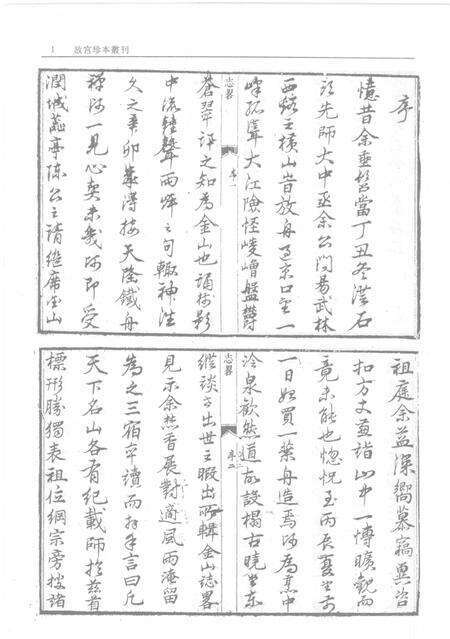 1 故宮珍本叢刊
序
憶昔余垂髫當丁丑冬漢石
頭先師大中丞余公問易武林
西爽主橫山昔放舟過京口望一
峰孤聳大江險怪崚嶒盤欝
志畧 序一
蒼翠訝之知為金山也誦樹影
中流鐘聲兩岸之句輙神注
久之辛卯薄按天隆鐵舟
禪師一見心契未幾師即受
潤城 亭陳公之請繼席金山
祖庭余益深嚮慕竊輿沿
扣方丈兼詣山中一慱曠觀而
竟未能也惚怳至丙辰夏 前
一日始買一葉舟造焉師為烹中
泠泉歡然道故設榻古曉 東
志畧 序二
縱談了出世主暇出所輯金山誌畧
見示余焚香展對適風雨淹留
為之三宿卒讀而拜手言曰凡
天下名山各有紀載師於茲首
標形勝獨表祖位綱宗旁搜諸